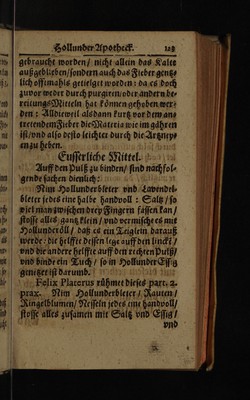 Hollunder Apotheck.
gebraucht worden / nicht allein das Kalte
außgeblieben / sondern auch das Fieber gentz-
lich offtmahls getielget worden: da es doch
zuvor weder durch purgiren / oder andern be-
reitungs Mitteln hat können gehoben wer-
den: Alldieweil alsdann kurtz vor dem ans
tretendem Fieber die Materia wie im gähren
ist / und also desto leichter durch die Artzeyen
an zu heben.
Eusserliche Mittel.
Auff den Pulß zu binden / sind nachfol-
gende sachen dienlich:
Nim Hollunderbleter und Lavendel-
bleter jedes eine halbe handvoll: Saltz / so
viel man zwischen drey Fingern fassen kan /
stosse alles gantz klein / und vermischt es mit
Hollunderöll / daß es ein Teiglein darauß
werde: die helffte deissen lege auff den linckt /
und die andere helffte auff den rechten Pulß /
und binde ein Tuch / so in Hollunder Essig
genitzet ist darumb.
Felix Platerus rühmet dieses part. 2.
prax. Nim Hollunderbleter / Rauten /
Ringelblumen / Neiseln jedes eine handvoll /
stosse alles zusamen mit Saltz und Essig /
und